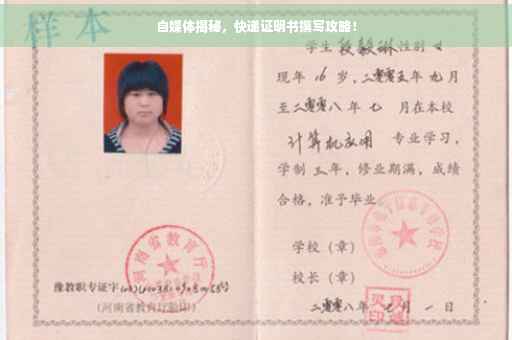 自媒体揭秘，快递证明书撰写攻略！
样本
学生段毅琳性别女
现年16岁，二零零五年九月
至二零零八年七月在本校
计算机应用 专业学习，
学制三年，修业期满，成绩
合格，准予毕业
学校（章）
校长（章）
二零零八年七月一日
河南省教育厅
豫教职专证字
（河南省教育厅验印）